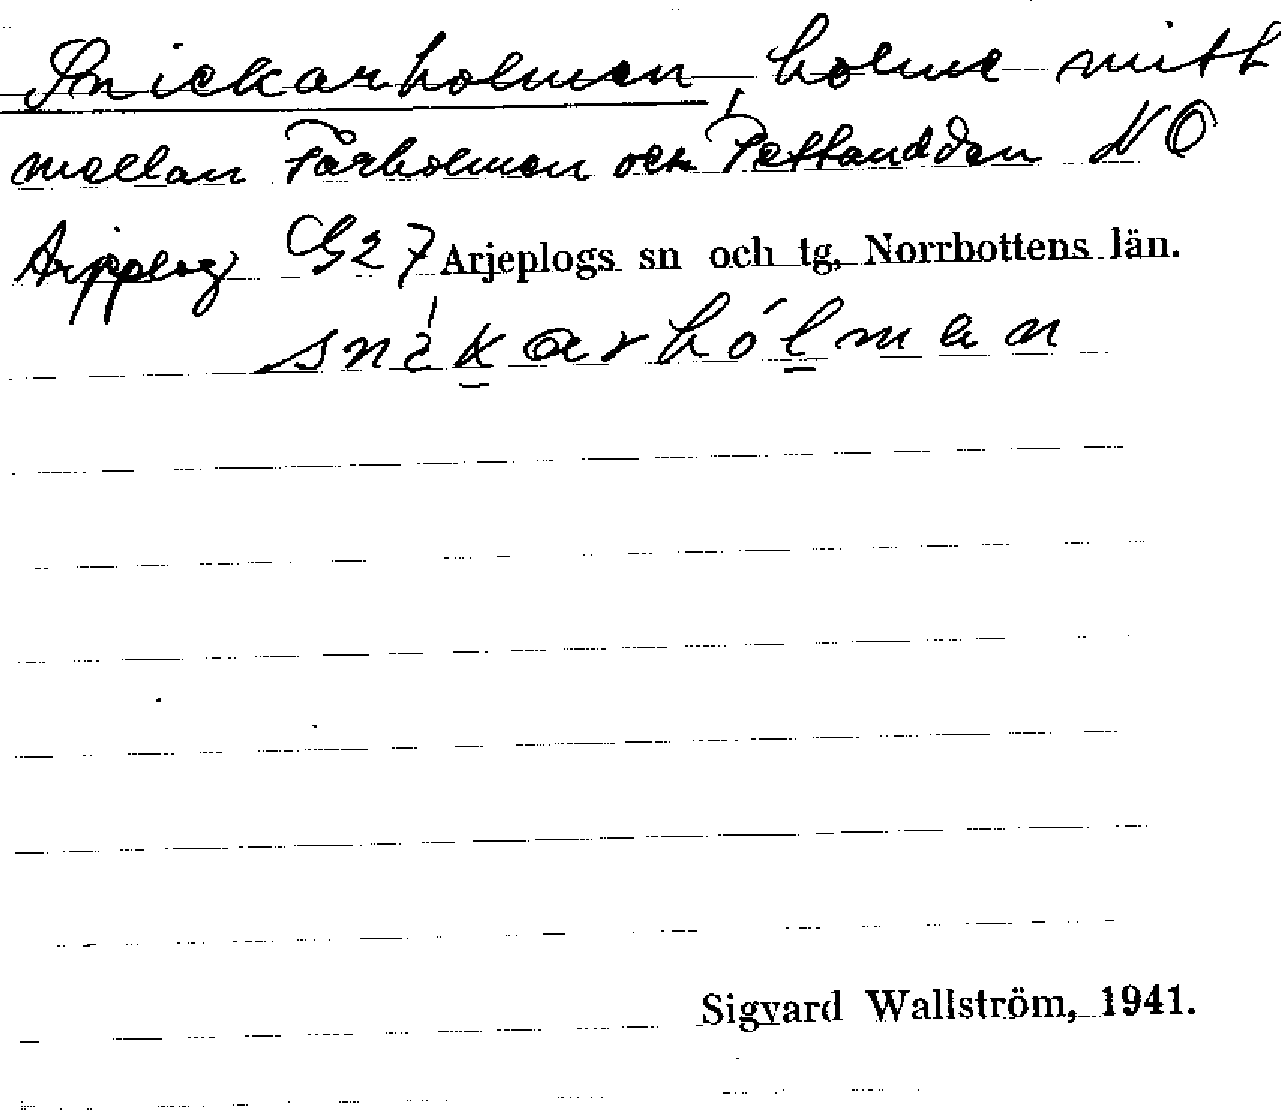 Snickarholmen, holme mitt
mellan Fårholmen och Pettaudden NO
Arjeplog G27 Arjeplogs sn och tg, Norrbottens län.
snikarhólman
Sigvard Wallström, 1941.